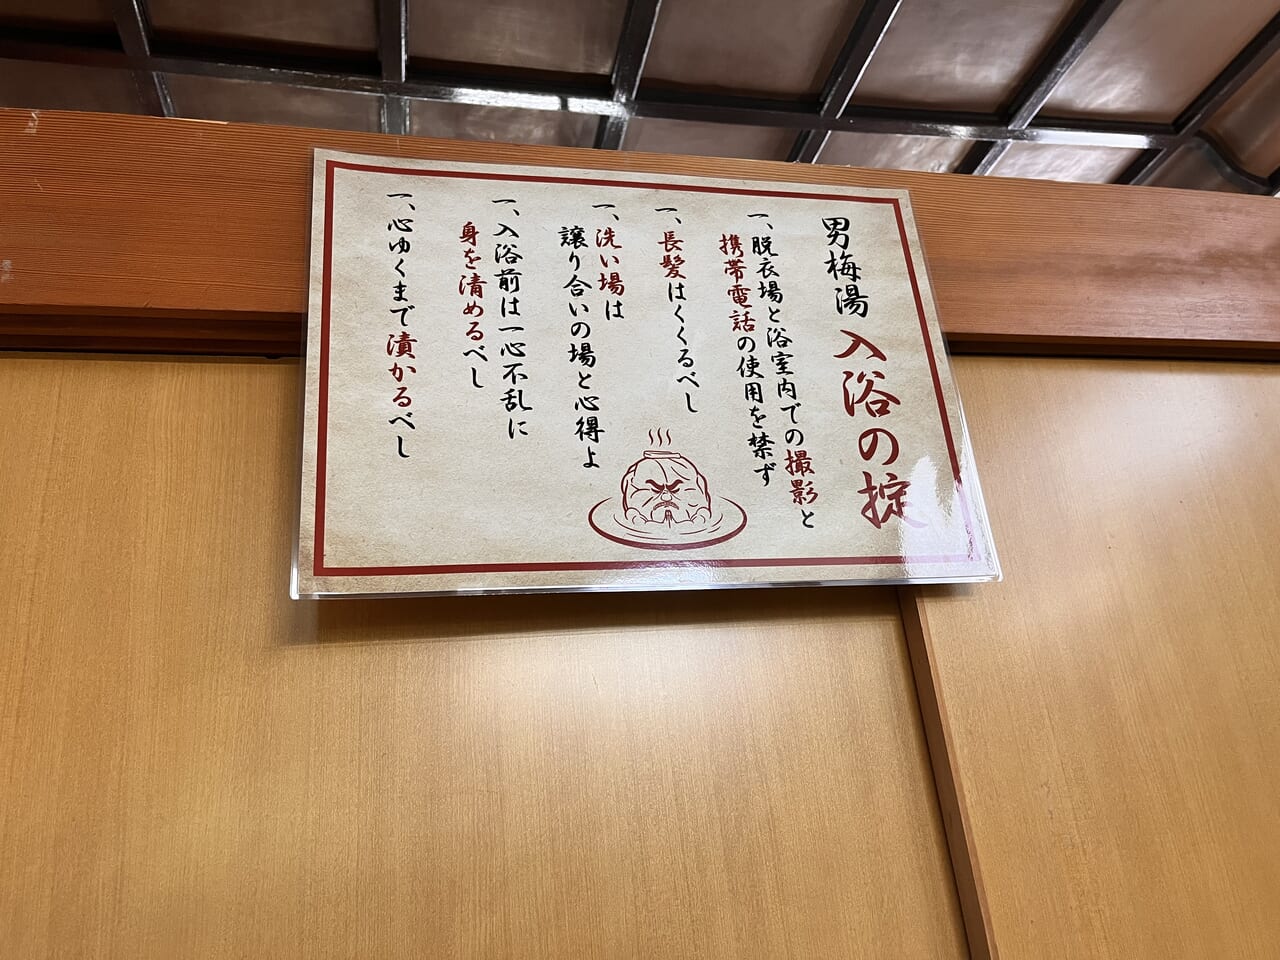 男梅湯 入浴の掟
一、脱衣場と浴室内での撮影と
携帯電話の使用を禁ず
一、長髪はくくるべし
一、洗い場は
譲り合いの場と心得よ
一、入浴前は一心不乱に
身を清めるべし
一、心ゆくまで漬かるべし